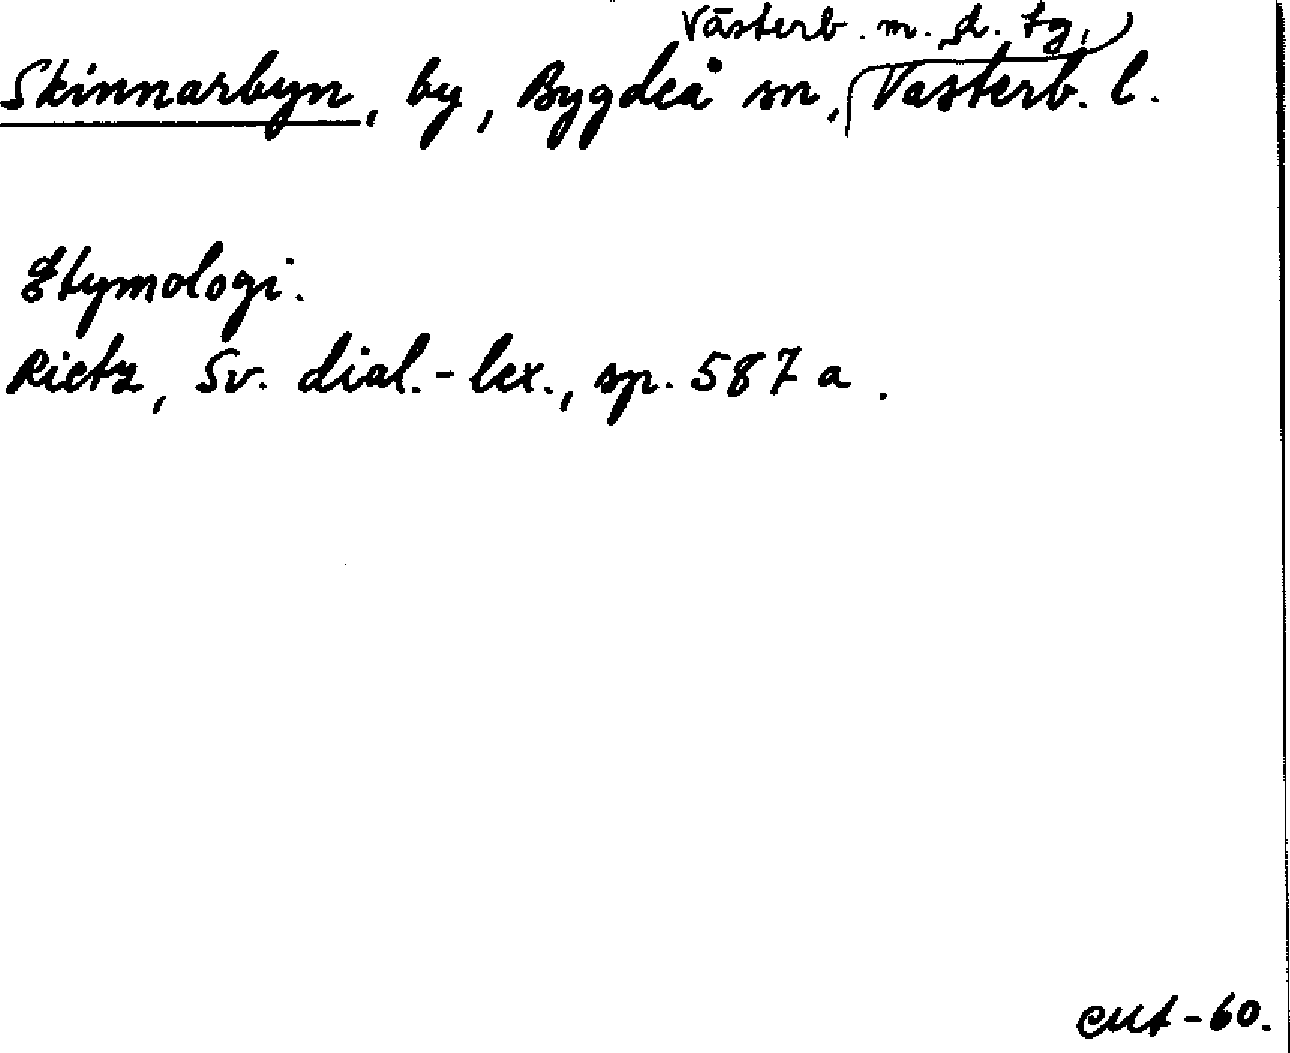 Västerb. m. d. tg,
Skinnarbyn, by, Bygdeå sn, Västerb. l.
Etymologi.
Rietz, Sv. dial.-lex., sp. 587 a.
-60.